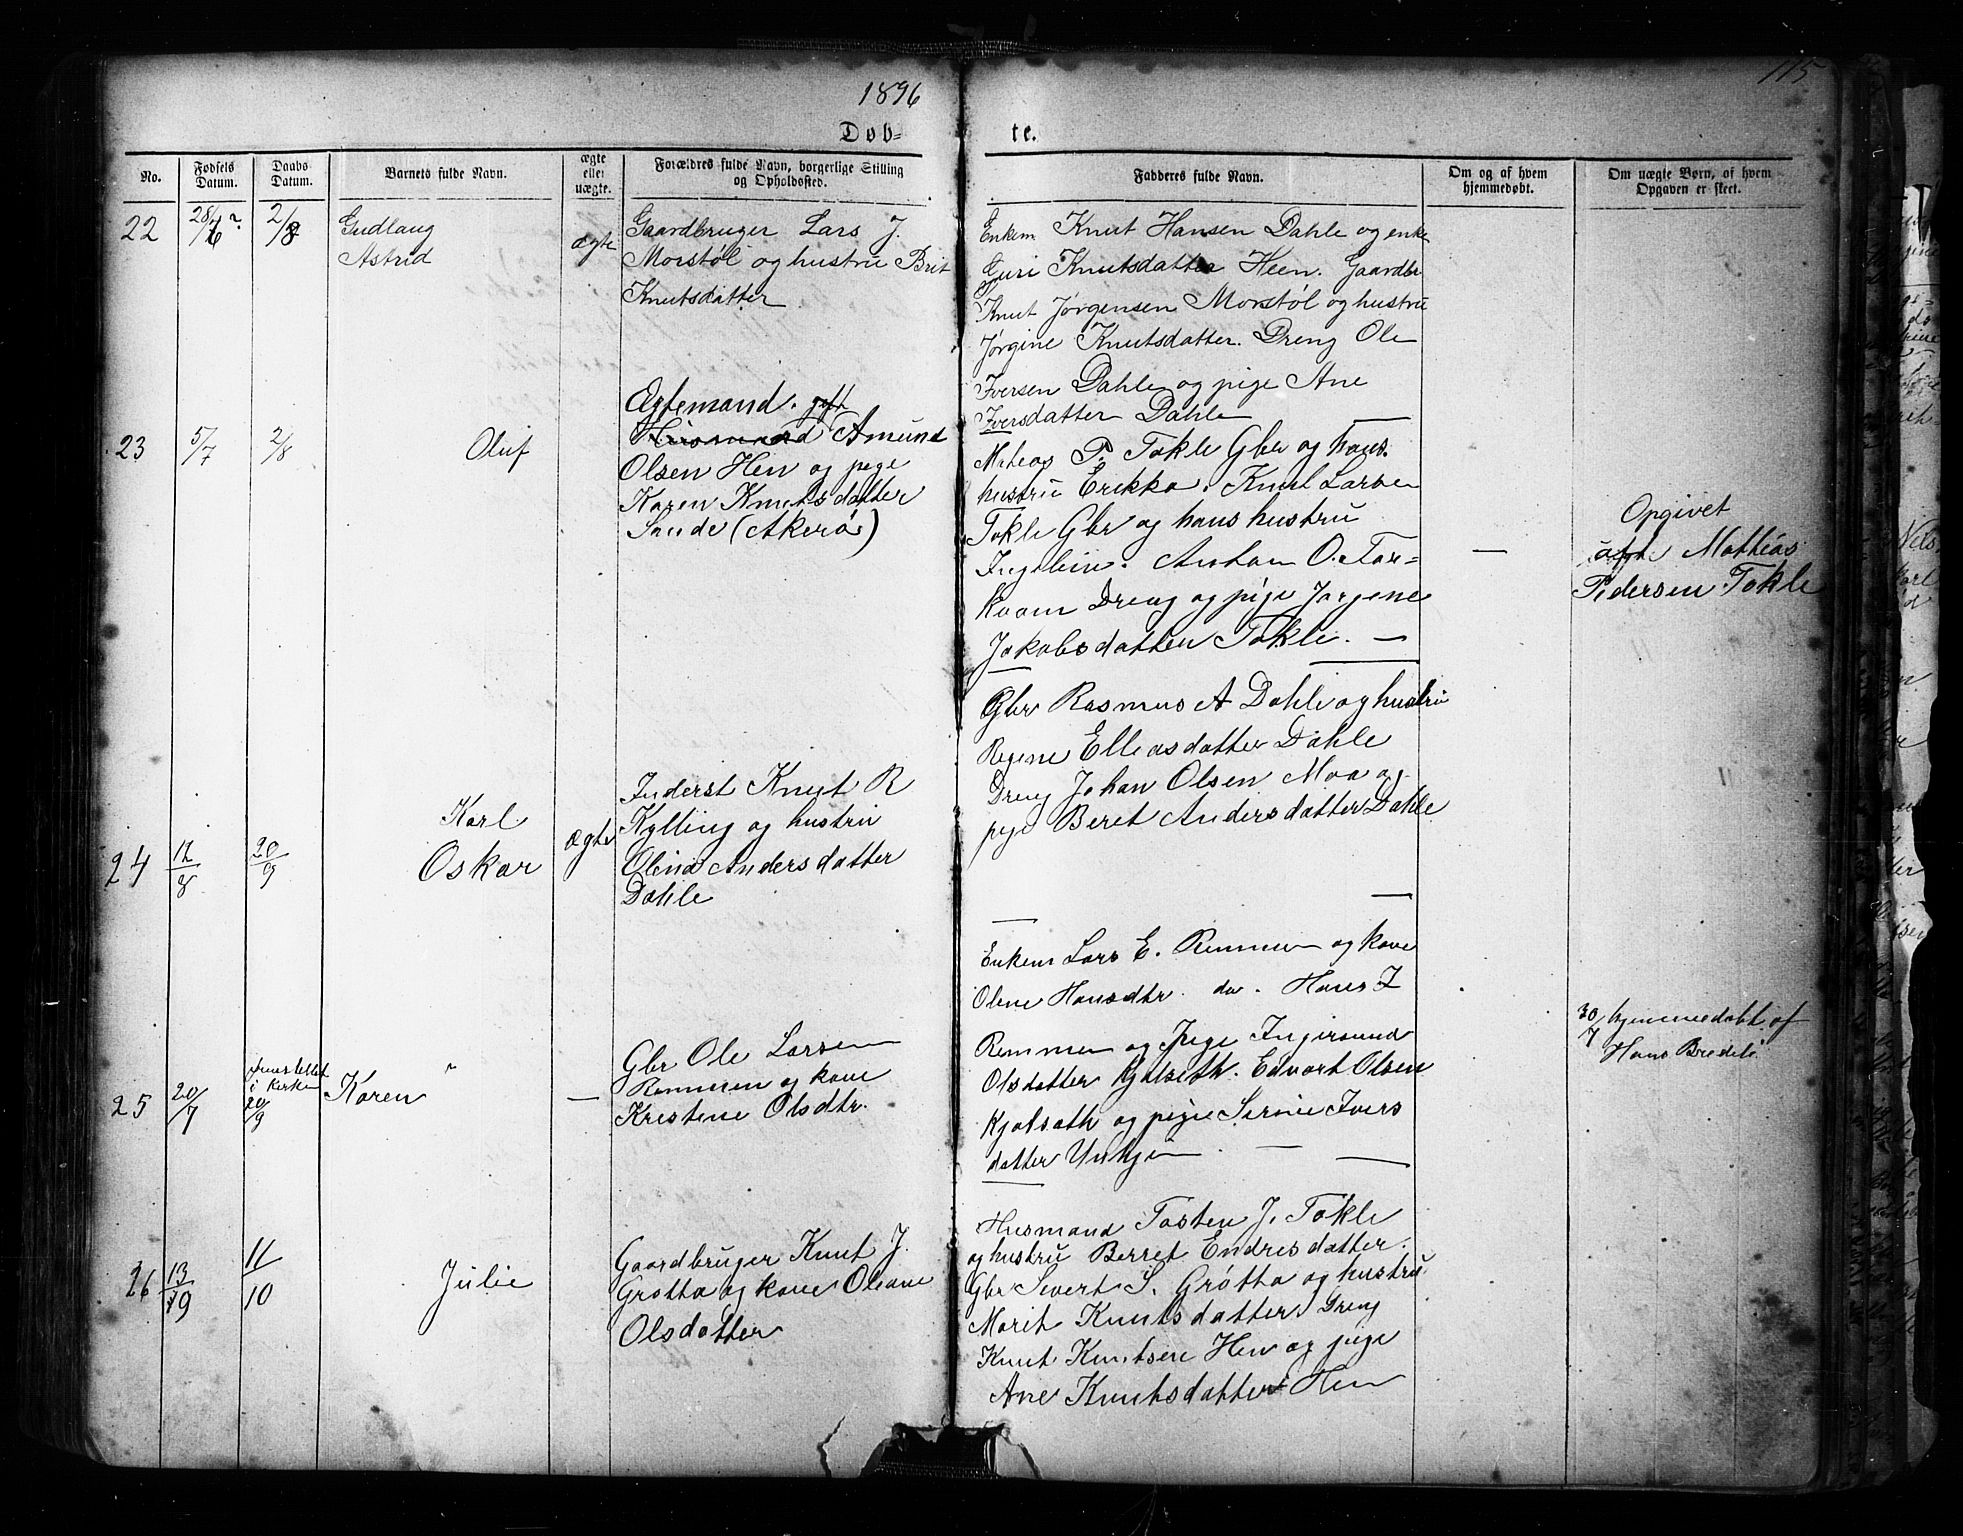 1896
115
Døb-
te.
No.
Fødsels Datum.
Daabs Datum.
Barnets fulde Navn.
ægte eller uægte.
Forældres fulde Navn, borgerlige Stilling og Opholdssted.
Fadderes fulde Navn.
Om og af hvem hjemmedøbt.
Om uægte Børn, af hvem Opgaven er skeet.
22
28/6?
2/8
Gudlaug
Astrid
ægte
Gaardbruger Lars J.
Morstøl og hustru Brit
Knutsdatter
Enkem Knut Hansen Dahle og enke
Guri Knutsdatter Heen. Gaardbr
Knut Jørgensen Morstøl og hustru
Jørgine Knutsdatter. Dreng Ole
Iversen Dahle og pige Ane
Iversdatter Dahle
23
5/7
2/8
Oluf
Egtemand. gift
Husmand Amund
Olsen Hen og pege
Karen Knutsdatter
Sande (Akerø)
Mateas P. Tokle Gbr og hans
hustru Erikka. Knut Larsen
Tokle Gbr og hans hustru
Ingebm. Anton O. Tor=
kvam Dreng og pige Jørgene
Jakobsdatter Tokle. —
—
Opgivet
af Mathias
Pedersen Tokle
24
12/8
20/9
Karl
Oskar
ægte
Inderst Knut R
Kylling og hustru
Olina Andersdatter
Dahle
Gbr Rasmus A Dahle og hustru
Regene Elleasdatter Dahle
Dreng Johan Olsen Moa og
pige Beret Andersdatter Dahle
25
20/7
i kirken
20/9
Karen
—
Gbr Ole Larsen
Remmen og kone
Kristene Olsdtr.
Enkem Lars E. Remmen og kone
Olene Hansdtr. do. Hans L
Remmen og Pige Ingersund
Olsdatter Kjølseth. Edvart Olsen
Kjølseth og pige Serine Ivers
datter Unhjem —
30/7 hjemmedøbt af
Hans Bredeli
26
13/9
11/10
Julie
Gaardbruger Knut J.
Grøtta og kone Oleane
Olsdatter
Husmand Tosten J. Tokle
og hustru Berret Endresdatter.
Gbr Sivert S. Grøtta og hustru
Marit Knutsdatter. Dreng
Knut Knutsen Hen og pige
Ane Knutsdatter Hen